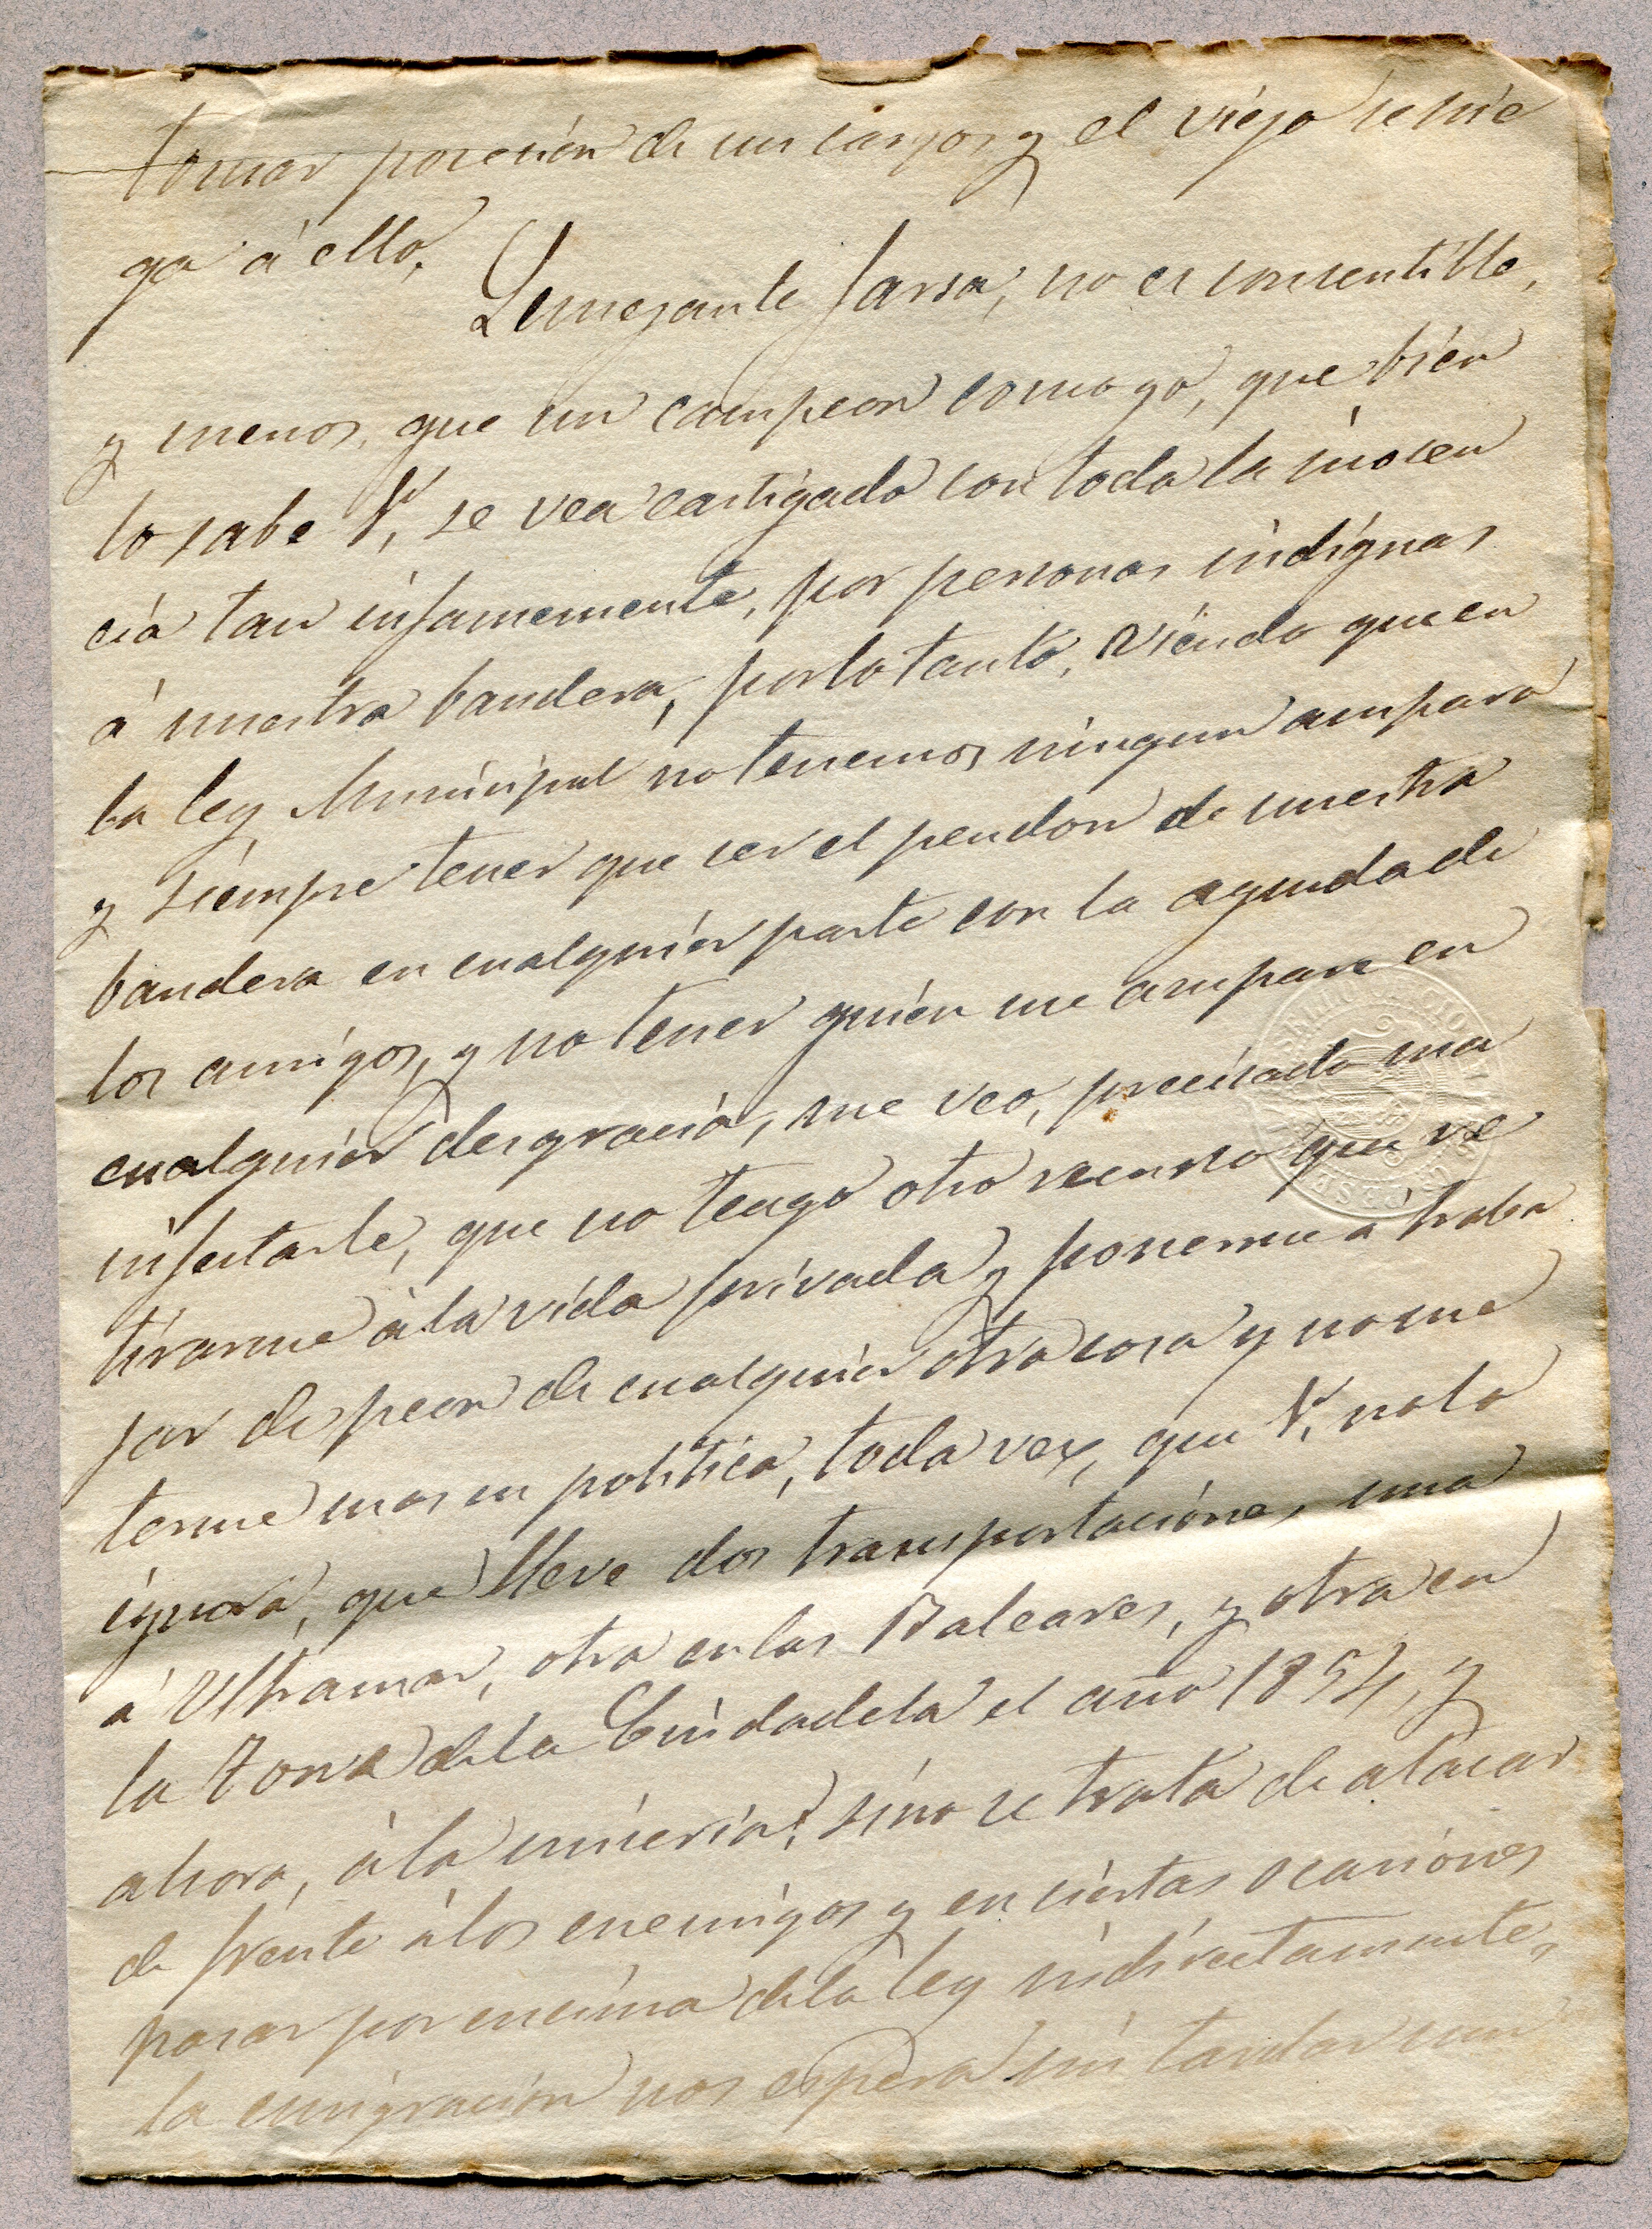 tomar posesión de sus cargos y el viejo se nie
ga á ello.
Semejante farsa, no es consentible,
y menos, que un campeon como yo, que bién
lo sabe V, se vea castigado con toda la inocen
cia tan infamemente, por personas indignas
á nuestra bandera, por lo tanto, viendo que en
la ley Municipal no tenemos ningun amparo
y siempre tener que ser el pendon de nuestra
bandera en cualquier parte con la aguda de
los amigos, y no tener quién me ampare en
cualquier desgracia, me veo, precisado ma
nifestarle, que no tengo otro recurso que re
tirarme á la vida privada y ponerme á traba
jar de peon de cualquier otra cosa y no me
terme mas en politica, toda vez, que V, no lo
ignora, que lleve dos transportaciónes, una
á Ultramar, otra en las Baleares, y otra en
la Torre de la Ciudadela el año 1854, y
ahora, á la miseria? sino se trata de atacar
de frente á los enemigos y en ciertas ocasiónes
pasar por encima de la ley indirectamente,
la emigración nos espera sin tardar un